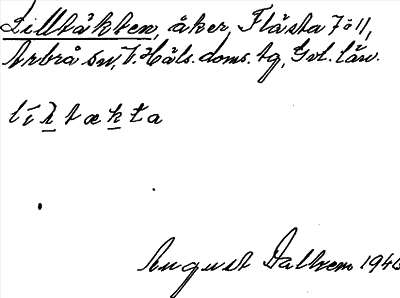 Lilltäkten, åker, Flästa 7 o 11,
Arbrå sn, V. Häls. doms. tg, Gvl. län.
líltækta
August Dalhem 194